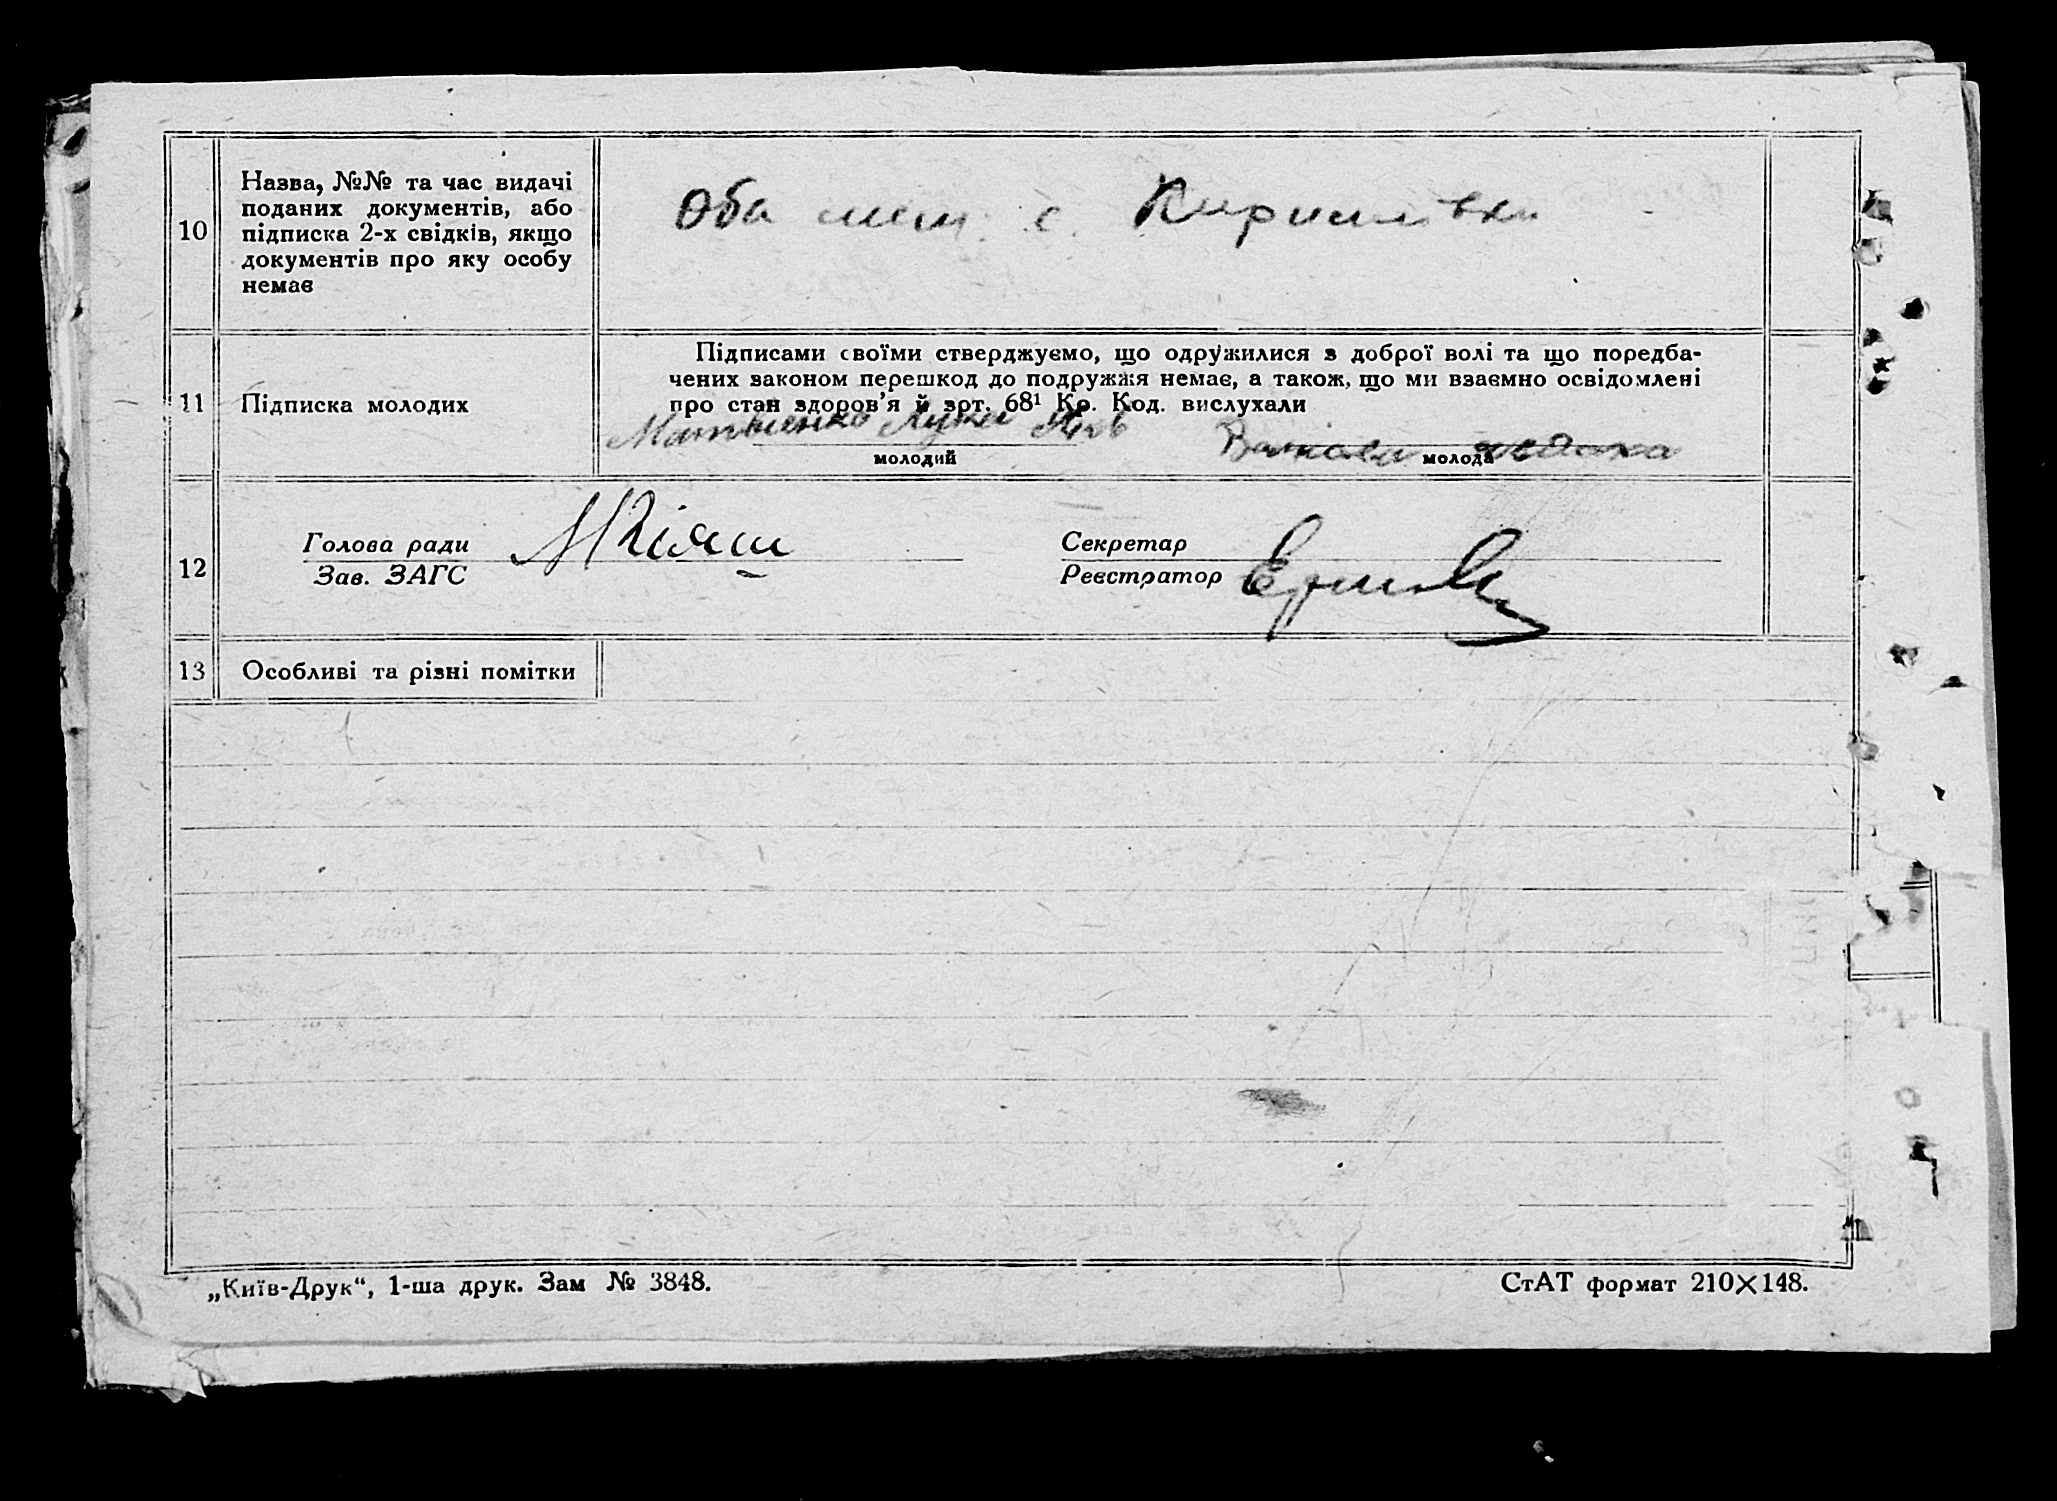 10
Назва, №№ та час видачі
поданих документів, або
підписка 2-х свідків, якщо
документів про яку особу
немає
Оба с.
11
Підписка молодих
Підписами своїми стверджуємо, що одружилися з доброї волі та що поредба-
чених законом перешкод до подружжя немає, а також, що ми взаємно освідомлені
про стан здоров'я й арт. 68¹ Кр. Код. вислухали
Матвієнко Лука
молодий
молода
12
Голова ради
Зав. ЗАГС
Кіяш
Секретар
Реєстратор
13
Особливі та різні помітки
„Київ-Друк“, 1-ша друк. Зам № 3848.
СтАТ формат 210×148.